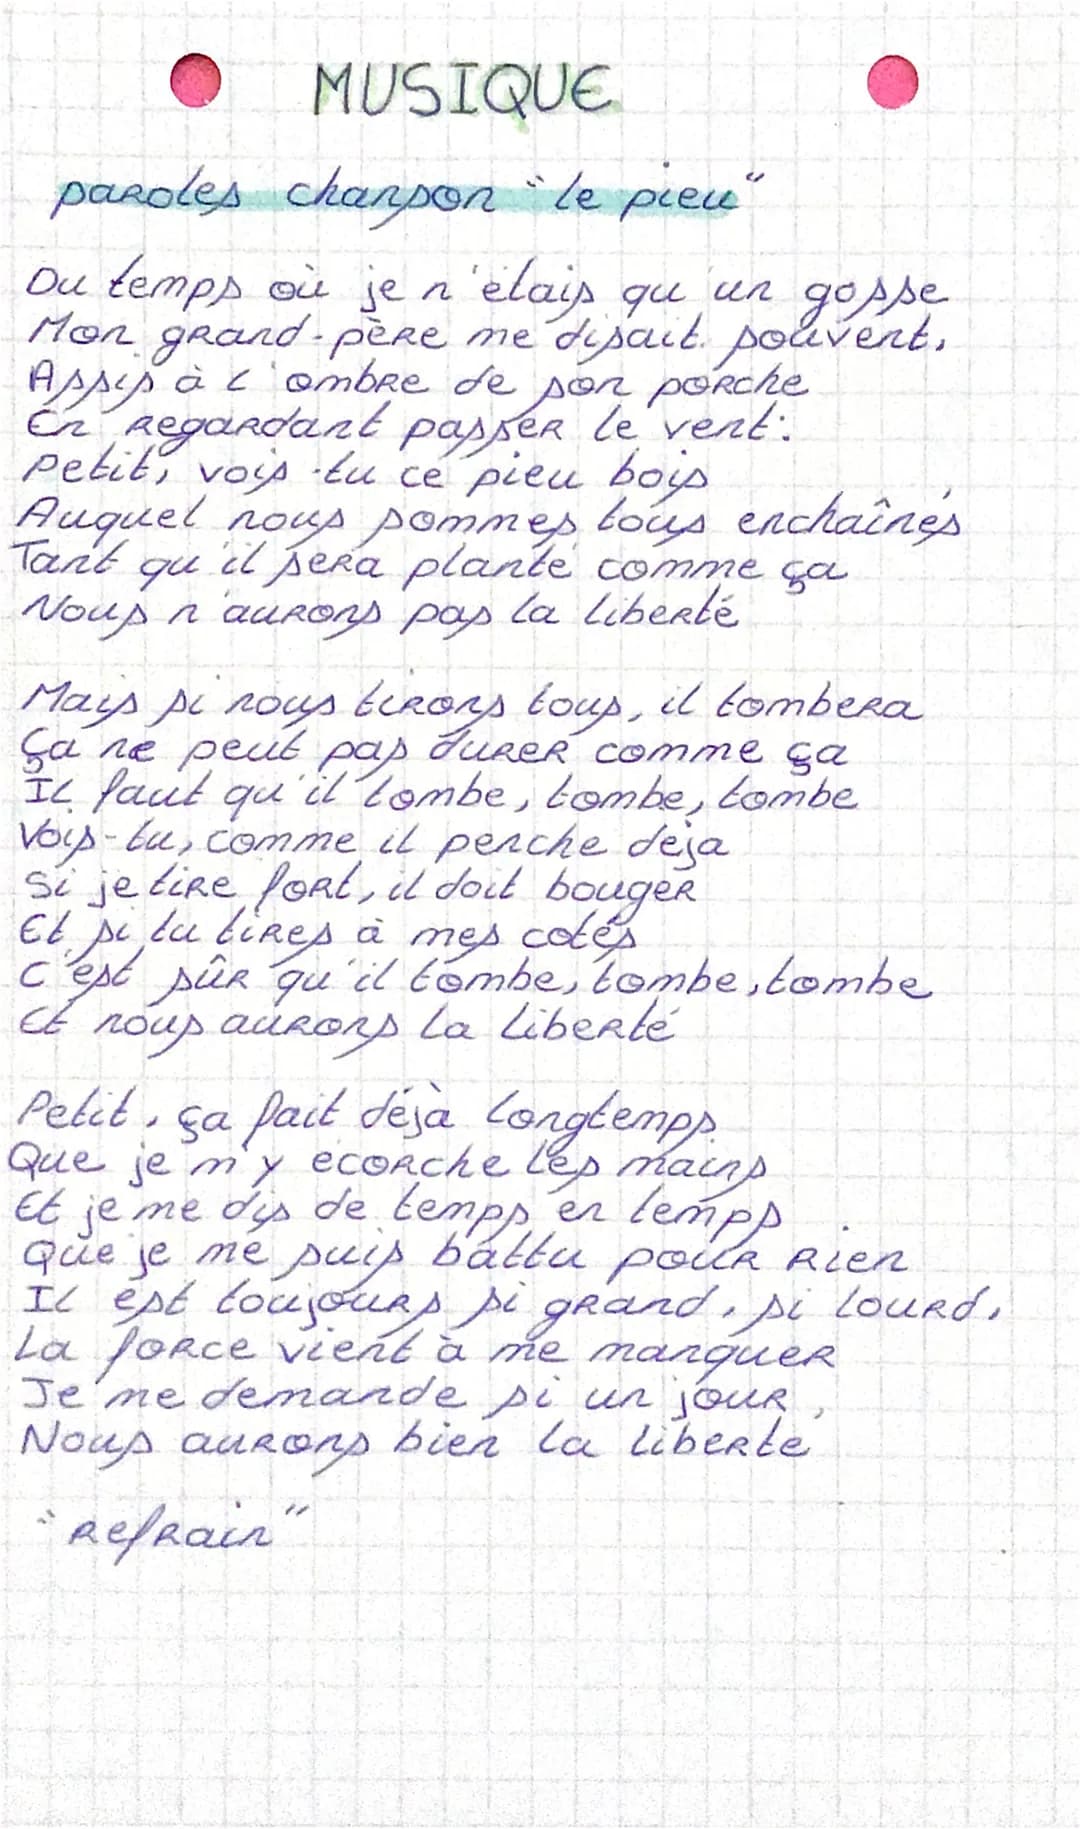 MUSIQUE
paroles chanson "le pieu"
Du temps où je n'étais qu'un gosse
Mon grand-père me disait souvent,
Assis à l'ombre de son porche
En regardant passer le vent:
Petit, vois-tu ce pieu bois
Auquel nous sommes tous enchaînés
Tant qu'il sera planté comme ça
Nous n'aurons pas la liberté
Mais si nous tirons tous, il tombera
Ça ne peut pas durer comme ça
Il faut qu'il tombe, tombe, tombe
Vois-tu, comme il penche déja
Si je tire fort, il doit bouger
Et si tu tires à mes cotés
C'est sûr qu'il tombe, tombe, tombe
Et nous aurons la liberté
Petit, ça fait déjà longtemps
Que je m'y ecorche les mains
Et je me dis de temps en temps
Que je me suis battu pour rien
Il est toujours si grand, si lourd,
La force vient à me manquer
Je me demande si un jour
Nous aurons bien la liberté
"refrain"